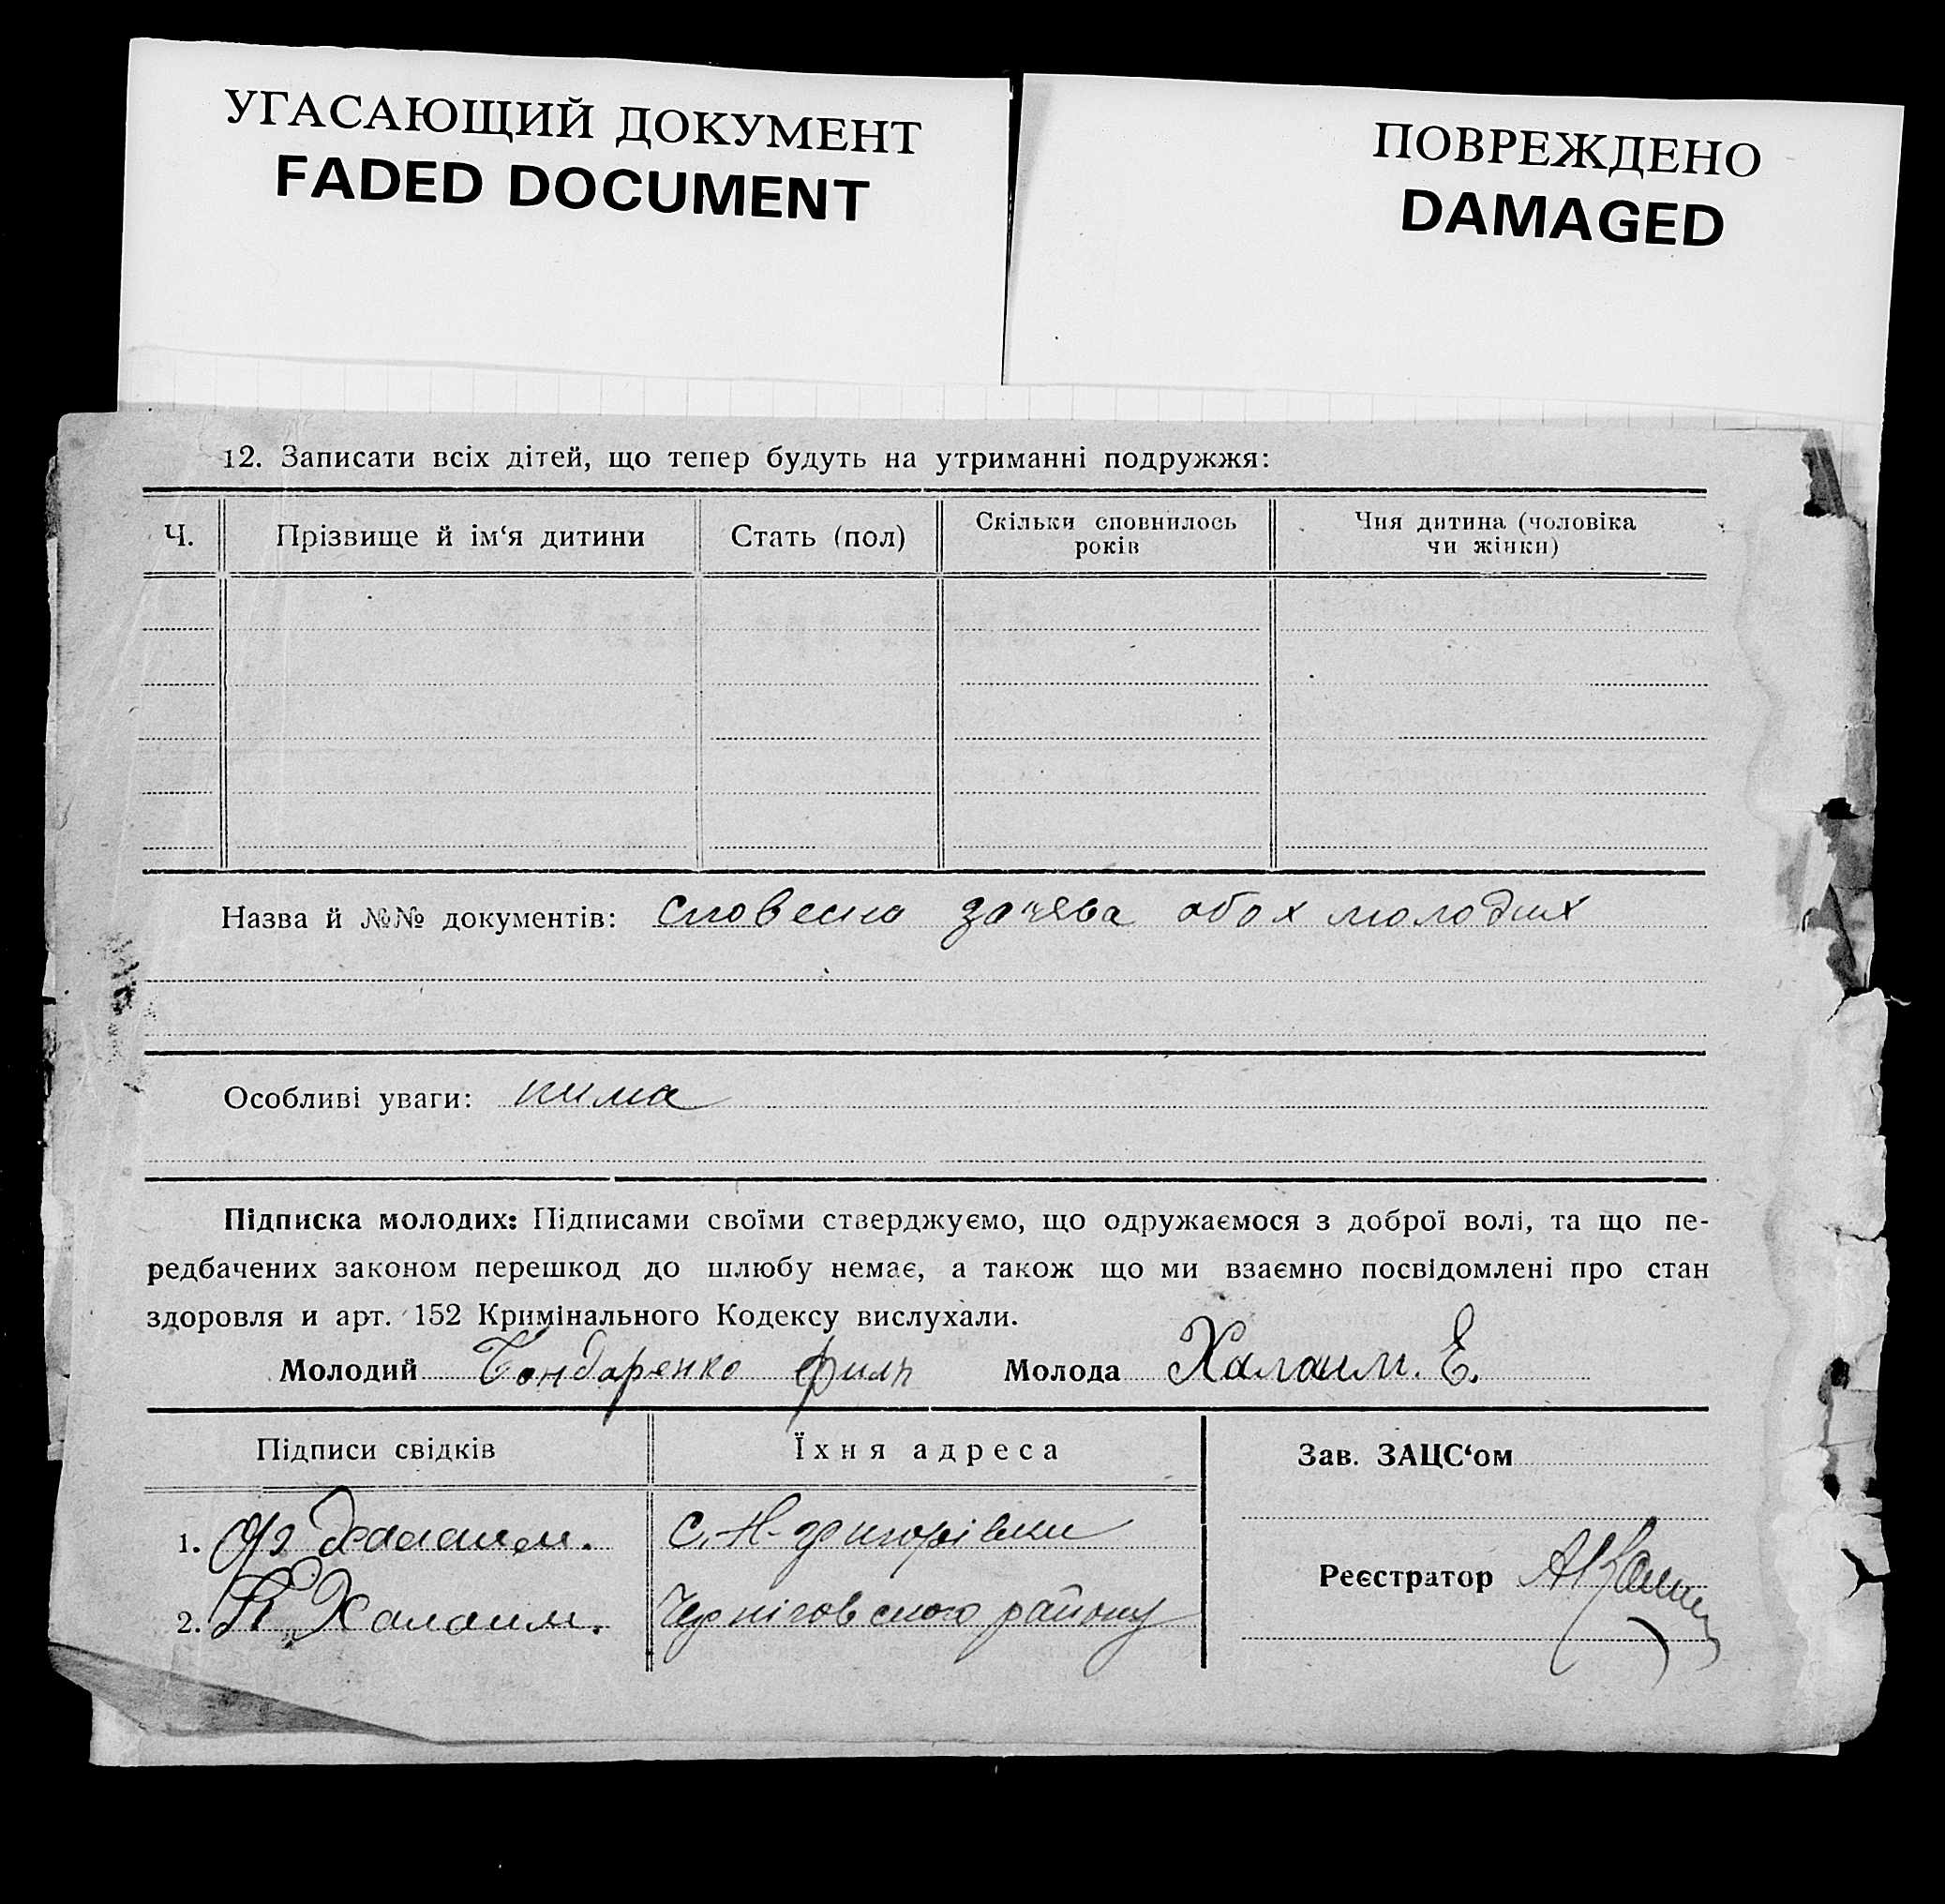 УГАСАЮЩИЙ ДОКУМЕНТ
FADED DOCUMENT
ПОВРЕЖДЕНО
DAMAGED
12. Записати всіх дітей, що тепер будуть на утриманні подружжя:
Ч. Прізвище й ім‘я дитини Стать (пол) Скільки сповнилось років Чия дитина (чоловіка чи жінки)
Назва й №№ документів: словесна зачева обох молодих
Особливі уваги: нима
Підписка молодих: Підписами своїми стверджуємо, що одружаємося з доброї волі, та що пе-
редбачених законом перешкод до шлюбу немає, а також що ми взаємно посвідомлені про стан
здоровля и арт. 152 Кримінального Кодексу вислухали.
Молодий Бондаренко филп Молода Халаим. Е.
Підписи свідків Їхня адреса Зав. ЗАЦС‘ом
1. Халаим. С. Н-Григорівки
2. Халаим. Черніговського району
Реєстратор